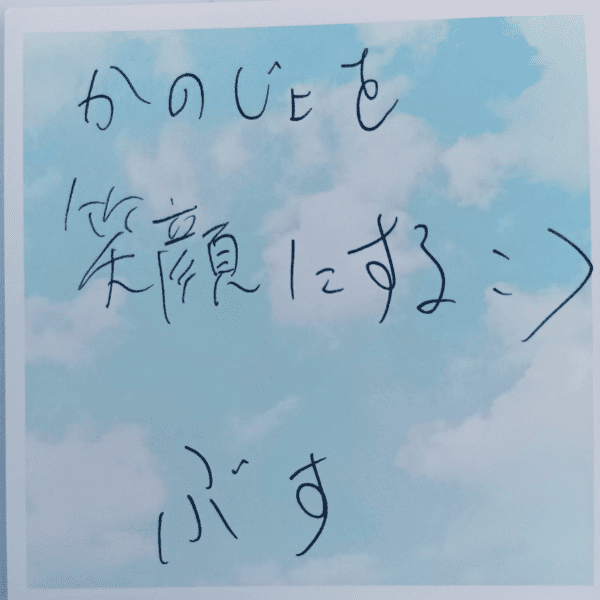 かのじょを
笑顔にする :)
ぶす